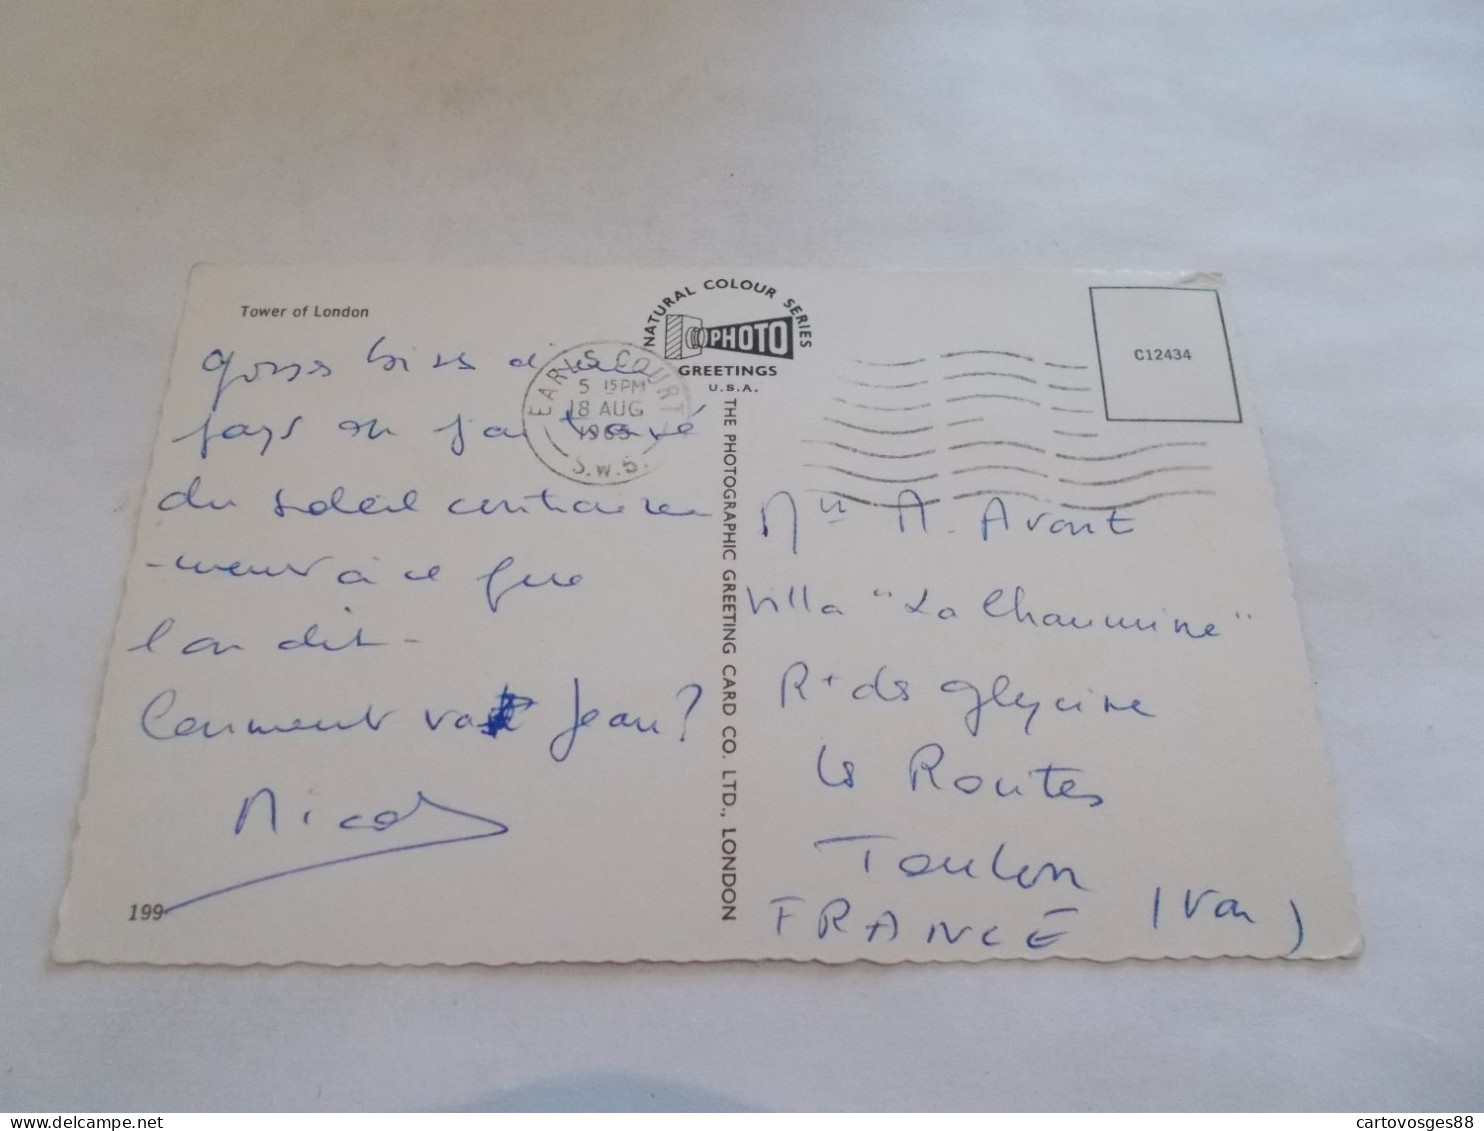 Tower of London
NATURAL COLOUR SERIES
PHOTO
GREETINGS
U.S.A.
C12434
EARLS COURT
5 15PM
18 AUG
S.W.5.
grosses bises d'un
pays où j'ai trouvé
du soleil contraire
-ment à ce que
l'on dit -
Comment va Jean?
Nicole
199
THE PHOTOGRAPHIC GREETING CARD CO. LTD., LONDON
A. Avont
Villa "La Chaumine"
Rt ds glycine
Ls Routes
Toulon
(Var)
FRANCE
www.delcampe.net
cartovosges88